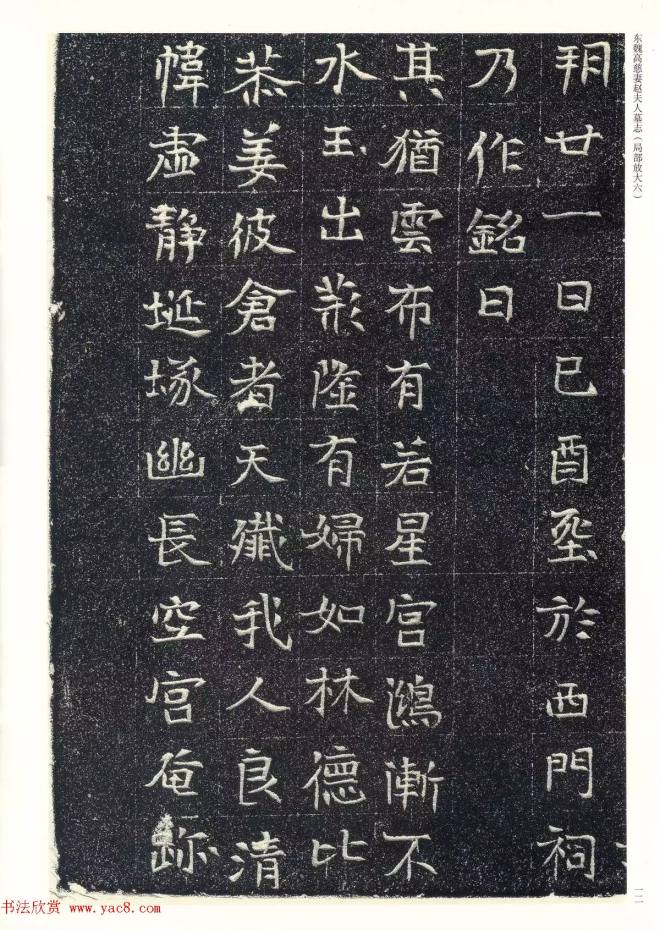 东魏高慈妻赵夫人墓志（局部放大六）
朔廿一日已酉窆於西門祠
乃作銘曰
其猶雲布有若星宮鴻漸不
水玉出荊隆有婦如林德比
恭姜彼倉者天殲我人良清
幃虛靜埏塚幽長空宮奄跡
一一一
书法欣赏 www.yac8.com